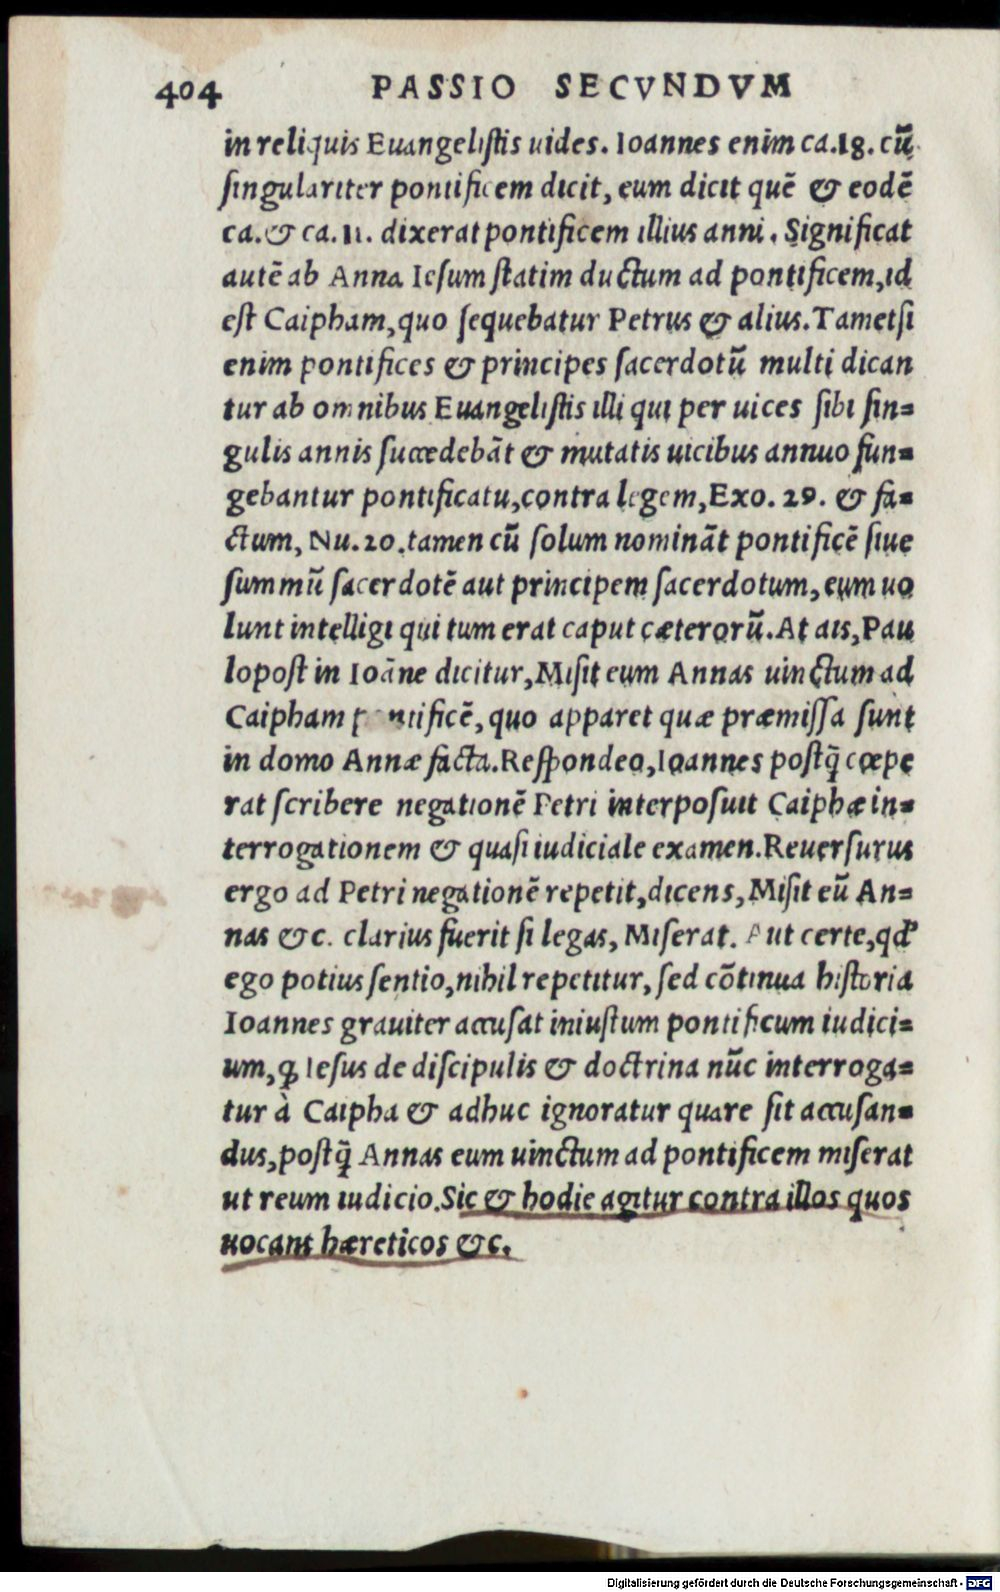 404 PASSIO SECVNDVM
in reliquis Euangeliſtis uides. Ioannes enim ca.18. cũ
ſingulariter pontificem dicit, eum dicit quẽ & eodẽ
ca. & ca. 11. dixerat pontificem illius anni. Significat
autẽ ab Anna Ieſum ſtatim ductum ad pontificem, id
eſt Caipham, quo ſequebatur Petrus & alius. Tametſi
enim pontifices & principes ſacerdotũ multi dican
tur ab omnibus Euangeliſtis illi qui per uices ſibi ſin-
gulis annis ſuccedebãt & mutatis uicibus annuo fun-
gebantur pontificatu, contra legem, Exo. 29. & fa-
ctum, Nu. 20. tamen cũ ſolum nominãt pontificẽ ſiue
ſummũ ſacerdotẽ aut principem ſacerdotum, eum uo
lunt intelligi qui tum erat caput cæterorũ. At ais, Pau
lopoſt in Ioãne dicitur, Miſit eum Annas uinctum ad
Caipham pontificẽ, quo apparet quæ præmiſſa ſunt
in domo Annæ facta. Reſpondeo, Ioannes poſtq̃ cœpe
rat ſcribere negationẽ Petri interpoſuit Caiphæ in-
terrogationem & quaſi iudiciale examen. Reuerſurus
ergo ad Petri negationẽ repetit, dicens, Miſit eũ An-
nas &c. clarius fuerit ſi legas, Miſerat. Aut certe, qđ
ego potius ſentio, nihil repetitur, ſed cõtinua hiſtoria
Ioannes grauiter accuſat iniuſtum pontificum iudici-
um, ꝙ Ieſus de diſcipulis & doctrina nũc interroga-
tur à Caipha & adhuc ignoratur quare ſit accuſan-
dus, poſtq̃ Annas eum uinctum ad pontificem miſerat
ut reum iudicio. Sic & hodie agitur contra illos quos
uocant hæreticos &c.
Digitalisierung gefördert durch die Deutsche Forschungsgemeinschaft - DFG